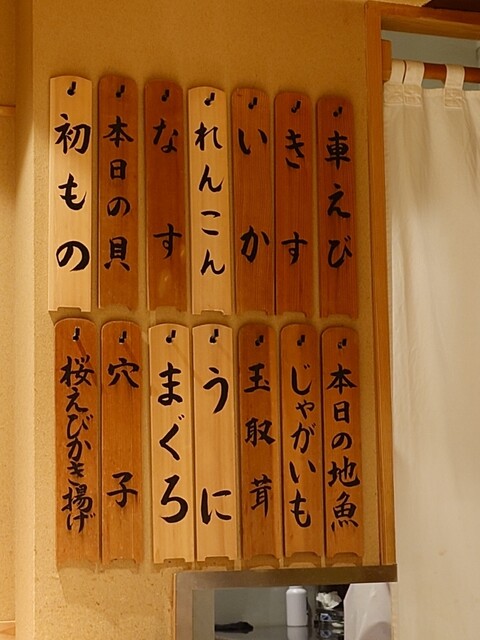 車えび
きす
いか
れんこん
なす
本日の貝
初もの
本日の地魚
じゃがいも
玉取茸
うに
まぐろ
穴子
桜えびかき揚げ